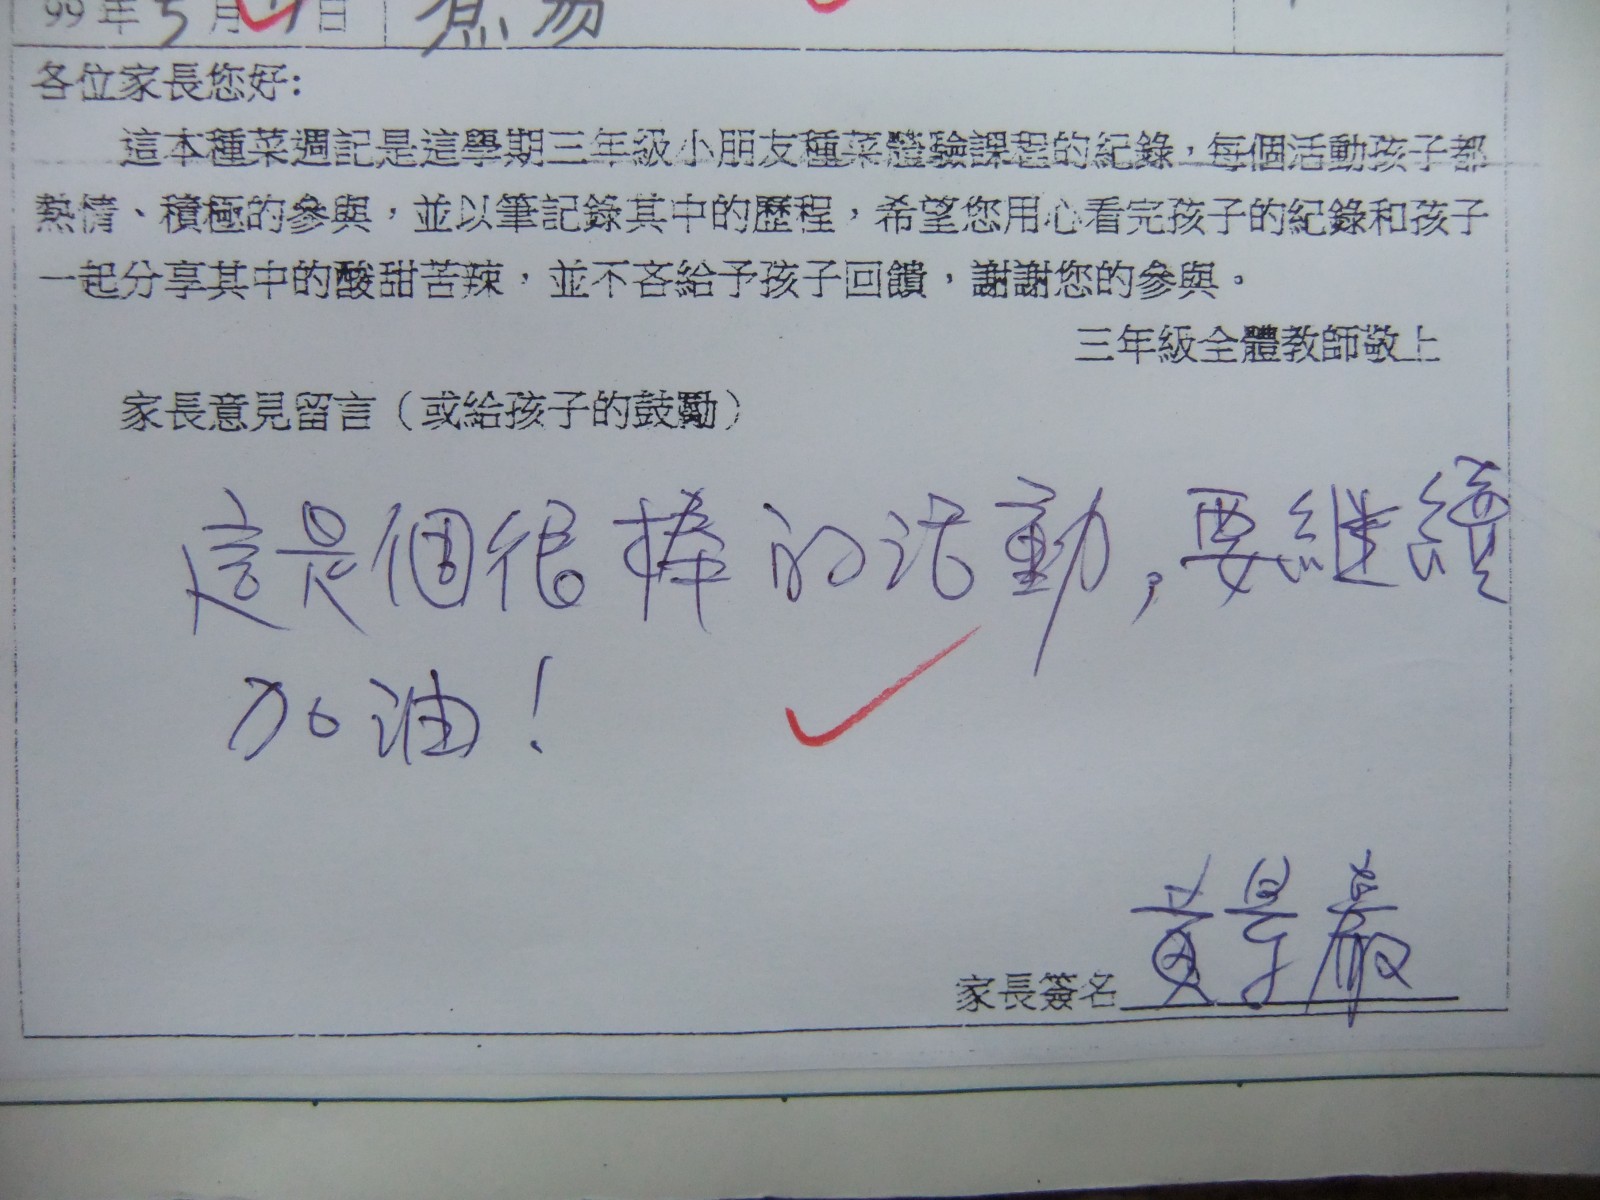 99年5月 日
各位家長您好:
這本種菜週記是這學期三年級小朋友種菜體驗課程的紀錄，每個活動孩子都
熱情、積極的參與，並以筆記錄其中的歷程，希望您用心看完孩子的紀錄和孩子
一起分享其中的酸甜苦辣，並不吝給予孩子回饋，謝謝您的參與。
三年級全體教師敬上
家長意見留言（或給孩子的鼓勵）
這是個很棒的活動,要繼續
加油!
家長簽名 黃景嚴